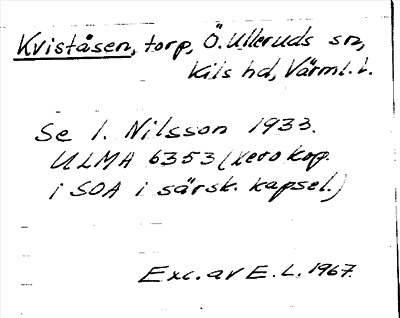 Kviståsen, torp, Ö. Ulleruds sn,
Kils hd, Värml. l.
Se I. Nilsson 1933.
ULMA 6353 (xerokop.
i SOA i särsk. kapsel.)
Exc. av E. L. 1967.